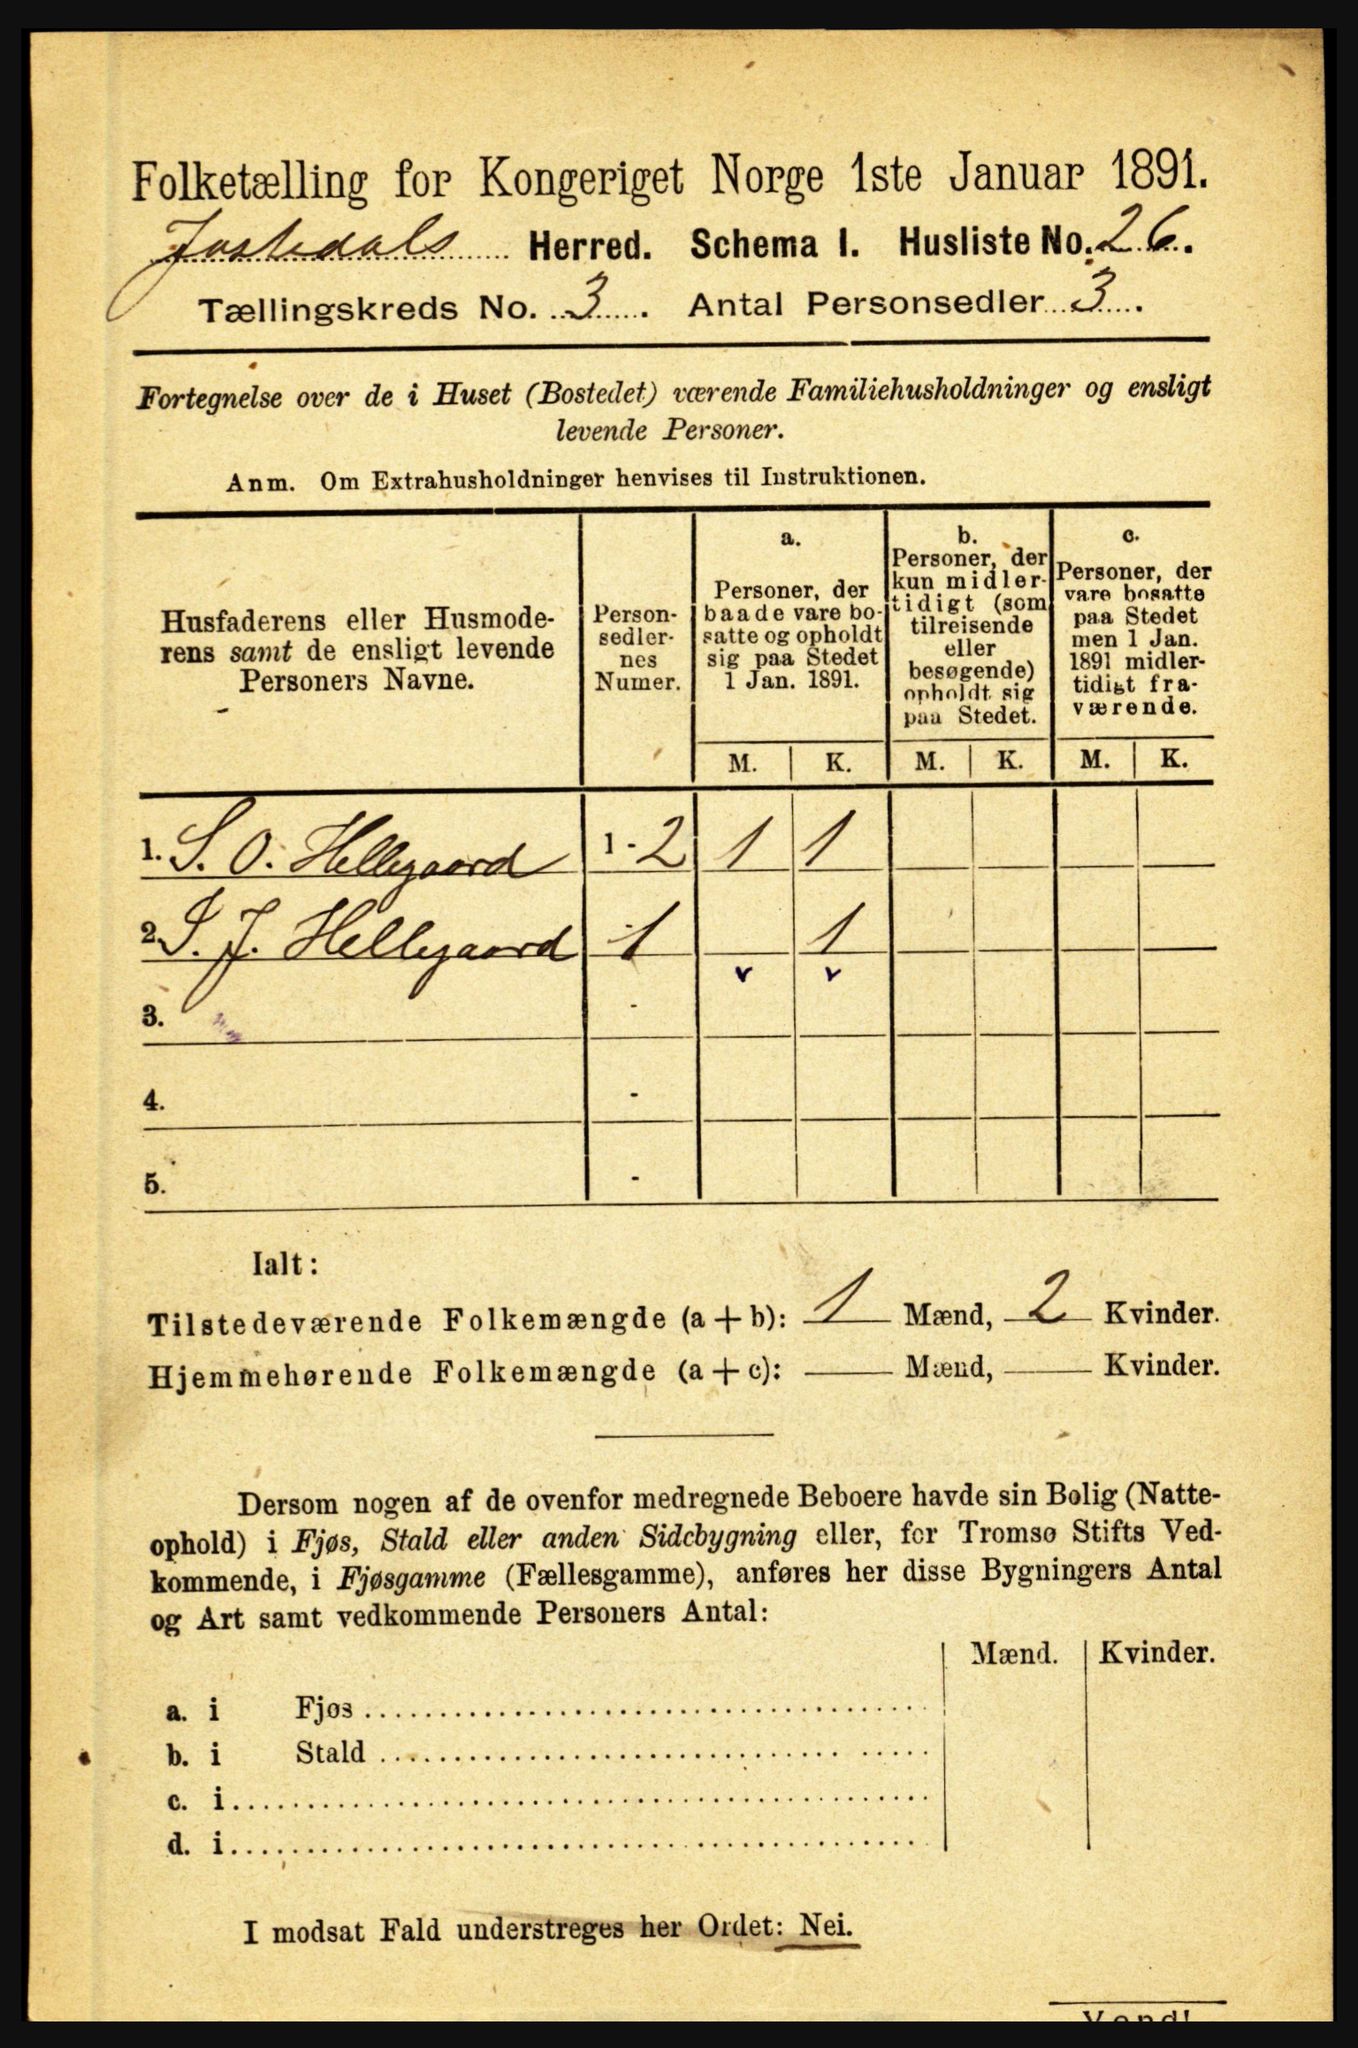 Folketælling for Kongeriget Norge 1ste Januar 1891.
Jostedals Herred. Schema I. Husliste No. 26.
Tællingskreds No. 3. Antal Personsedler 3.
Fortegnelse over de i Huset (Bostedet) værende Familiehusholdninger og ensligt
levende Personer.
Anm. Om Extrahusholdninger henvises til Instruktionen.
Husfaderens eller Husmode-
rens samt de ensligt levende
Personers Navne.
Person-
sedler-
nes
Numer.
a.
Personer, der
baade vare bo-
satte og opholdt
sig paa Stedet
1 Jan. 1891.
b.
Personer, der
kun midler-
tidigt (som
tilreisende
eller
besøgende)
opholdt sig
paa Stedet.
c.
Personer, der
vare bosatte
paa Stedet
men 1 Jan.
1891 midler-
tidigt fra-
værende.
M. K. M. K. M. K.
1. S. O. Hellegaard 1 - 2 1 1
2. I. J. Hellegaard 1 1
v v
3. -
4. -
5. -
Ialt:
Tilstedeværende Folkemængde (a + b): 1 Mænd, 2 Kvinder.
Hjemmehørende Folkemængde (a + c): Mænd, Kvinder.
Dersom nogen af de ovenfor medregnede Beboere havde sin Bolig (Natte-
ophold) i Fjøs, Stald eller anden Sidebygning eller, for Tromsø Stifts Ved-
kommende, i Fjøsgamme (Fællesgamme), anføres her disse Bygningers Antal
og Art samt vedkommende Personers Antal:
Mænd. Kvinder.
a. i Fjøs
b. i Stald
c. i
d. i
I modsat Fald understreges her Ordet: Nei.
Vend!